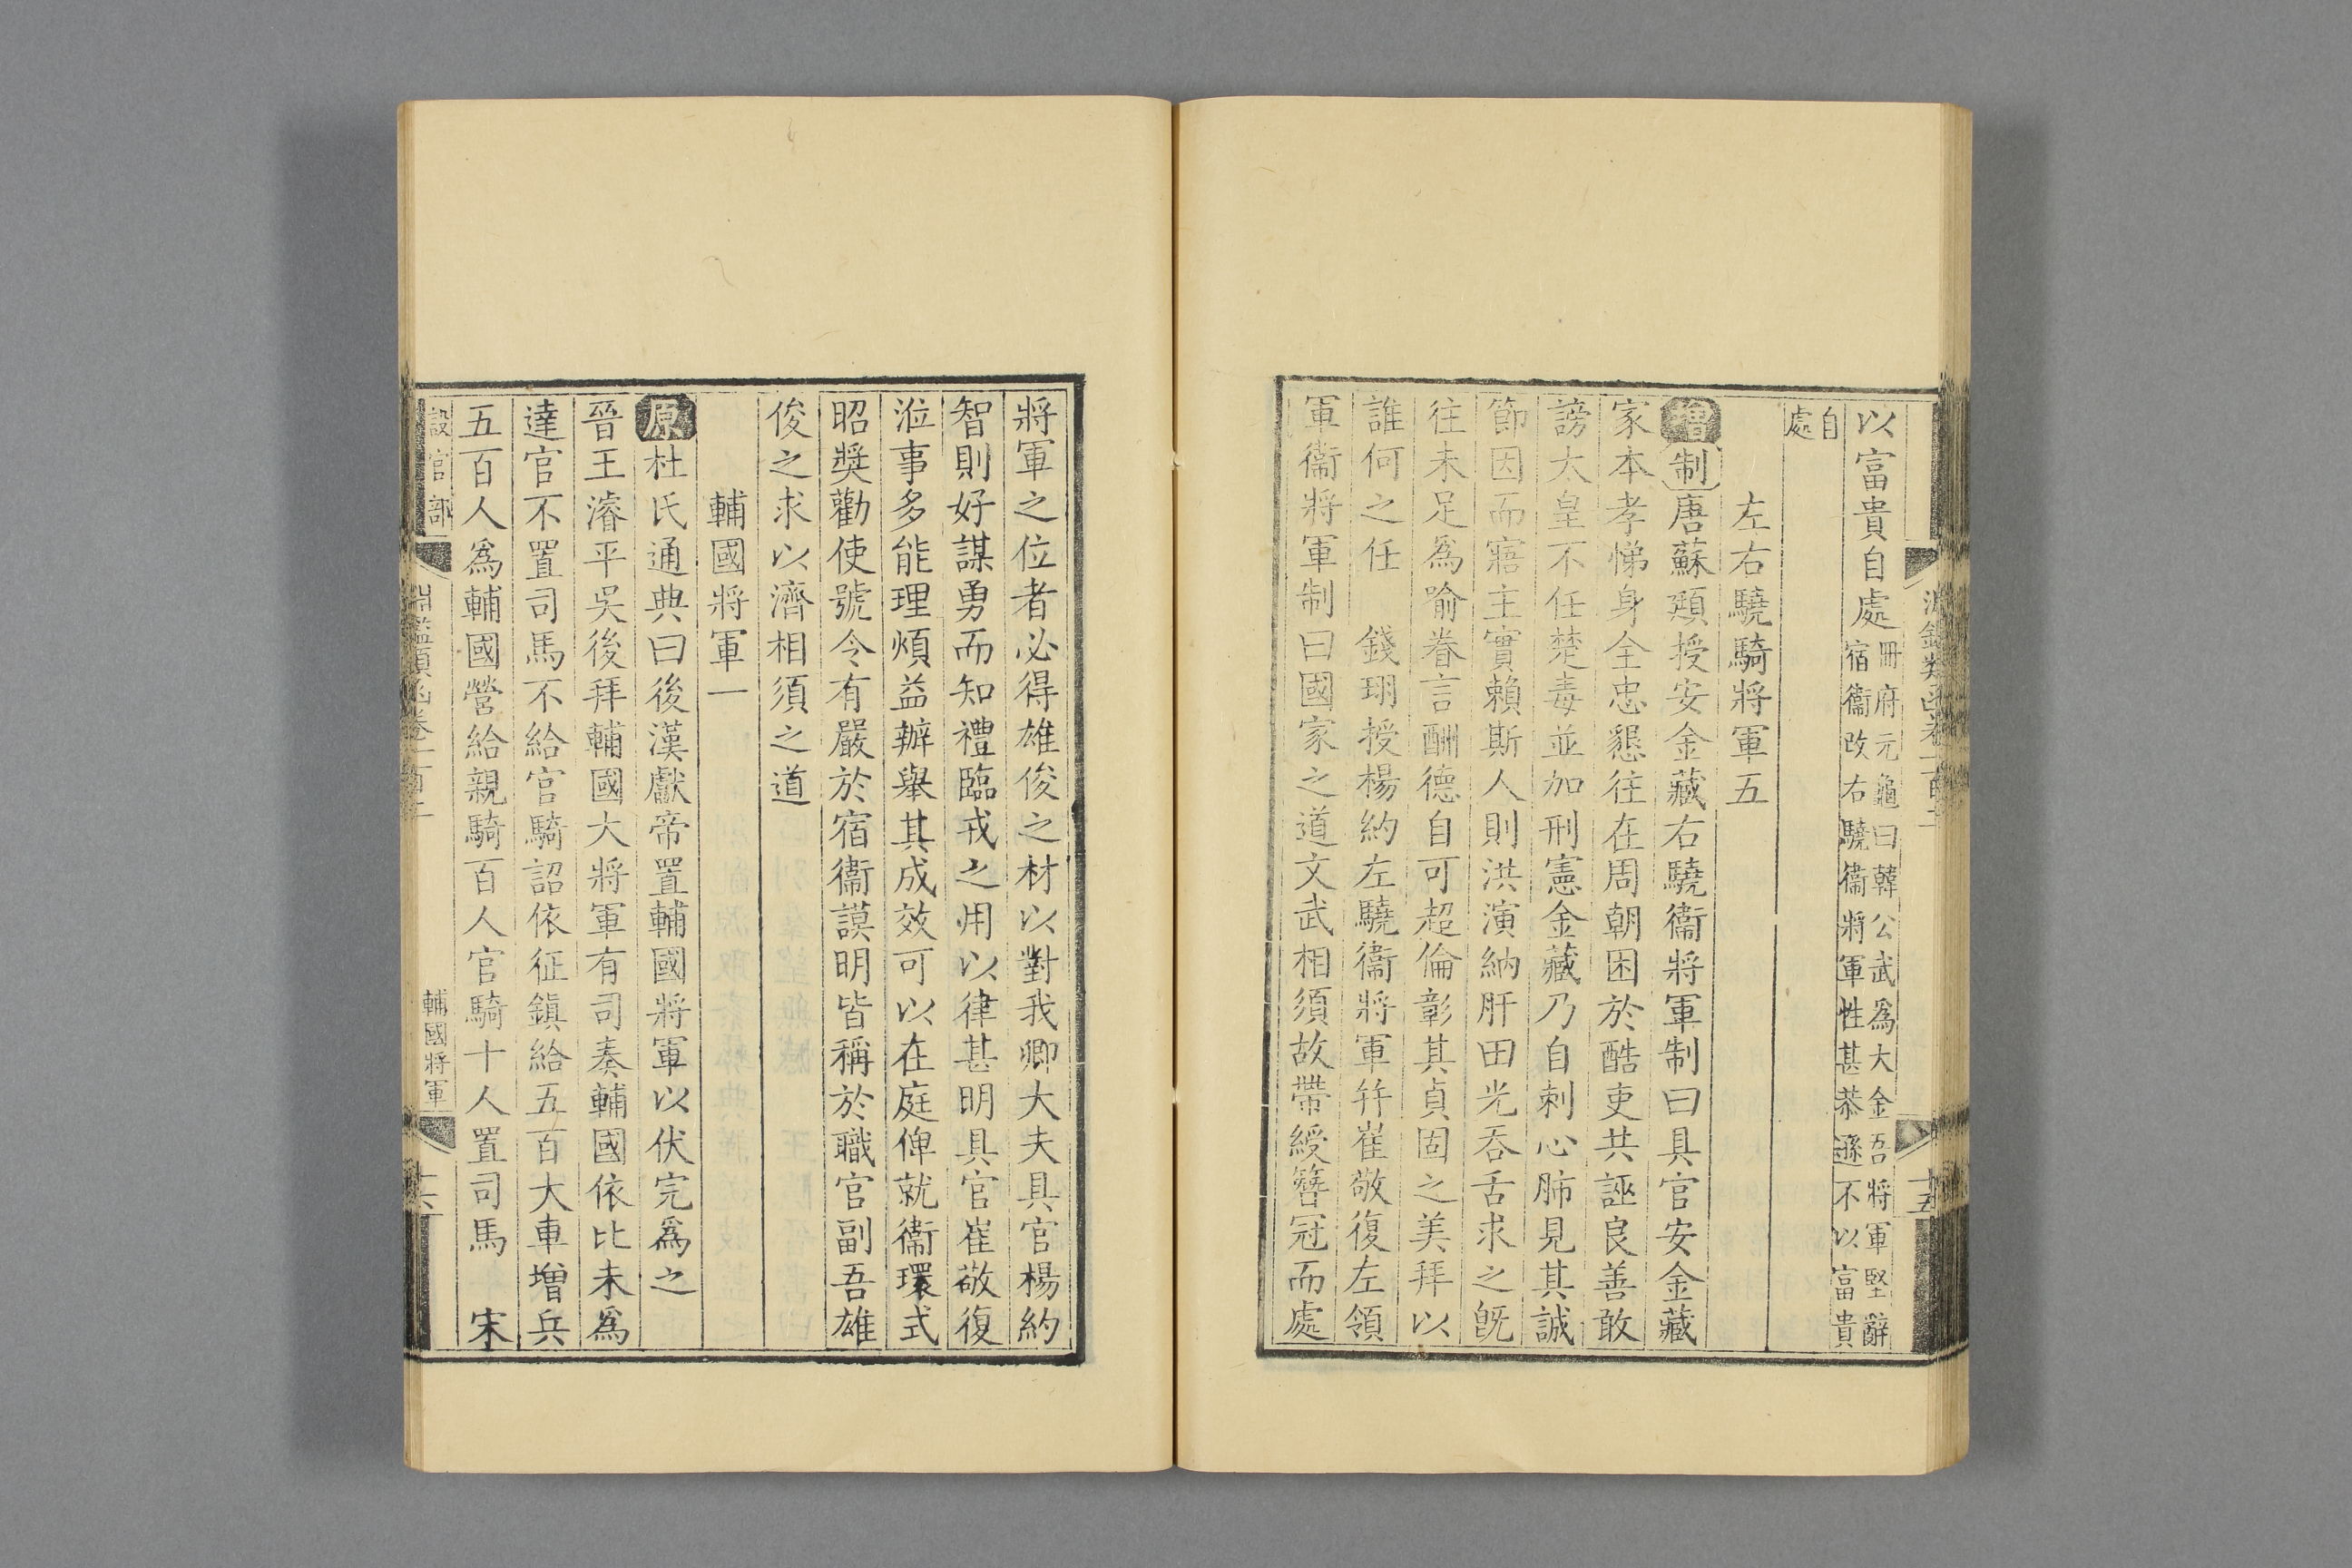 以富貴自處冊府元龜曰韓公武爲大金吾將軍堅辭宿衞改右驍衞將軍性甚恭遜不以富貴
自處
左右驍騎將軍五
增制唐蘇頲授安金藏右驍衞將軍制曰具官安金藏
家本孝悌身全忠懇往在周朝困於酷吏共誣良善敢
謗大皇不任楚毒並加刑憲金藏乃自刺心肺見其誠
節因而寤主實賴斯人則洪演納肝田光吞舌求之旣
往未足爲喻眷言酬德自可超倫彰其貞固之美拜以
誰何之任　錢珝授楊約左驍衞將軍幷崔敬復左領
軍衞將軍制曰國家之道文武相須故帶綬簪冠而處
十五
將軍之位者必得雄俊之材以對我卿大夫具官楊約
智則好謀勇而知禮臨戎之用以律甚明具官崔敬復
涖事多能理煩益辦舉其成效可以在庭俾就衞環式
昭奬勸使號令有嚴於宿衞謨明皆稱於職官副吾雄
俊之求以濟相須之道
輔國將軍一
原杜氏通典曰後漢獻帝置輔國將軍以伏完爲之
晉王濬平吳後拜輔國大將軍有司奏輔國依比未爲
達官不置司馬不給官騎詔依征鎮給五百大車增兵
五百人爲輔國營給親騎百人官騎十人置司馬　宋
設官部　淵鑑類函卷一百十　輔國將軍　十六